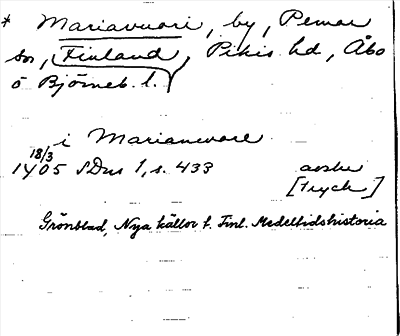 * Mariavuori, by, Pemar
sn, Finland, Pikis hd, Åbo
o Björneb. l.
i Marianvore
18/3
1405 SDns 1, s. 433 avskr
[tryck]
Grönblad, Nya källor t. Finl. Medeltidshistoria